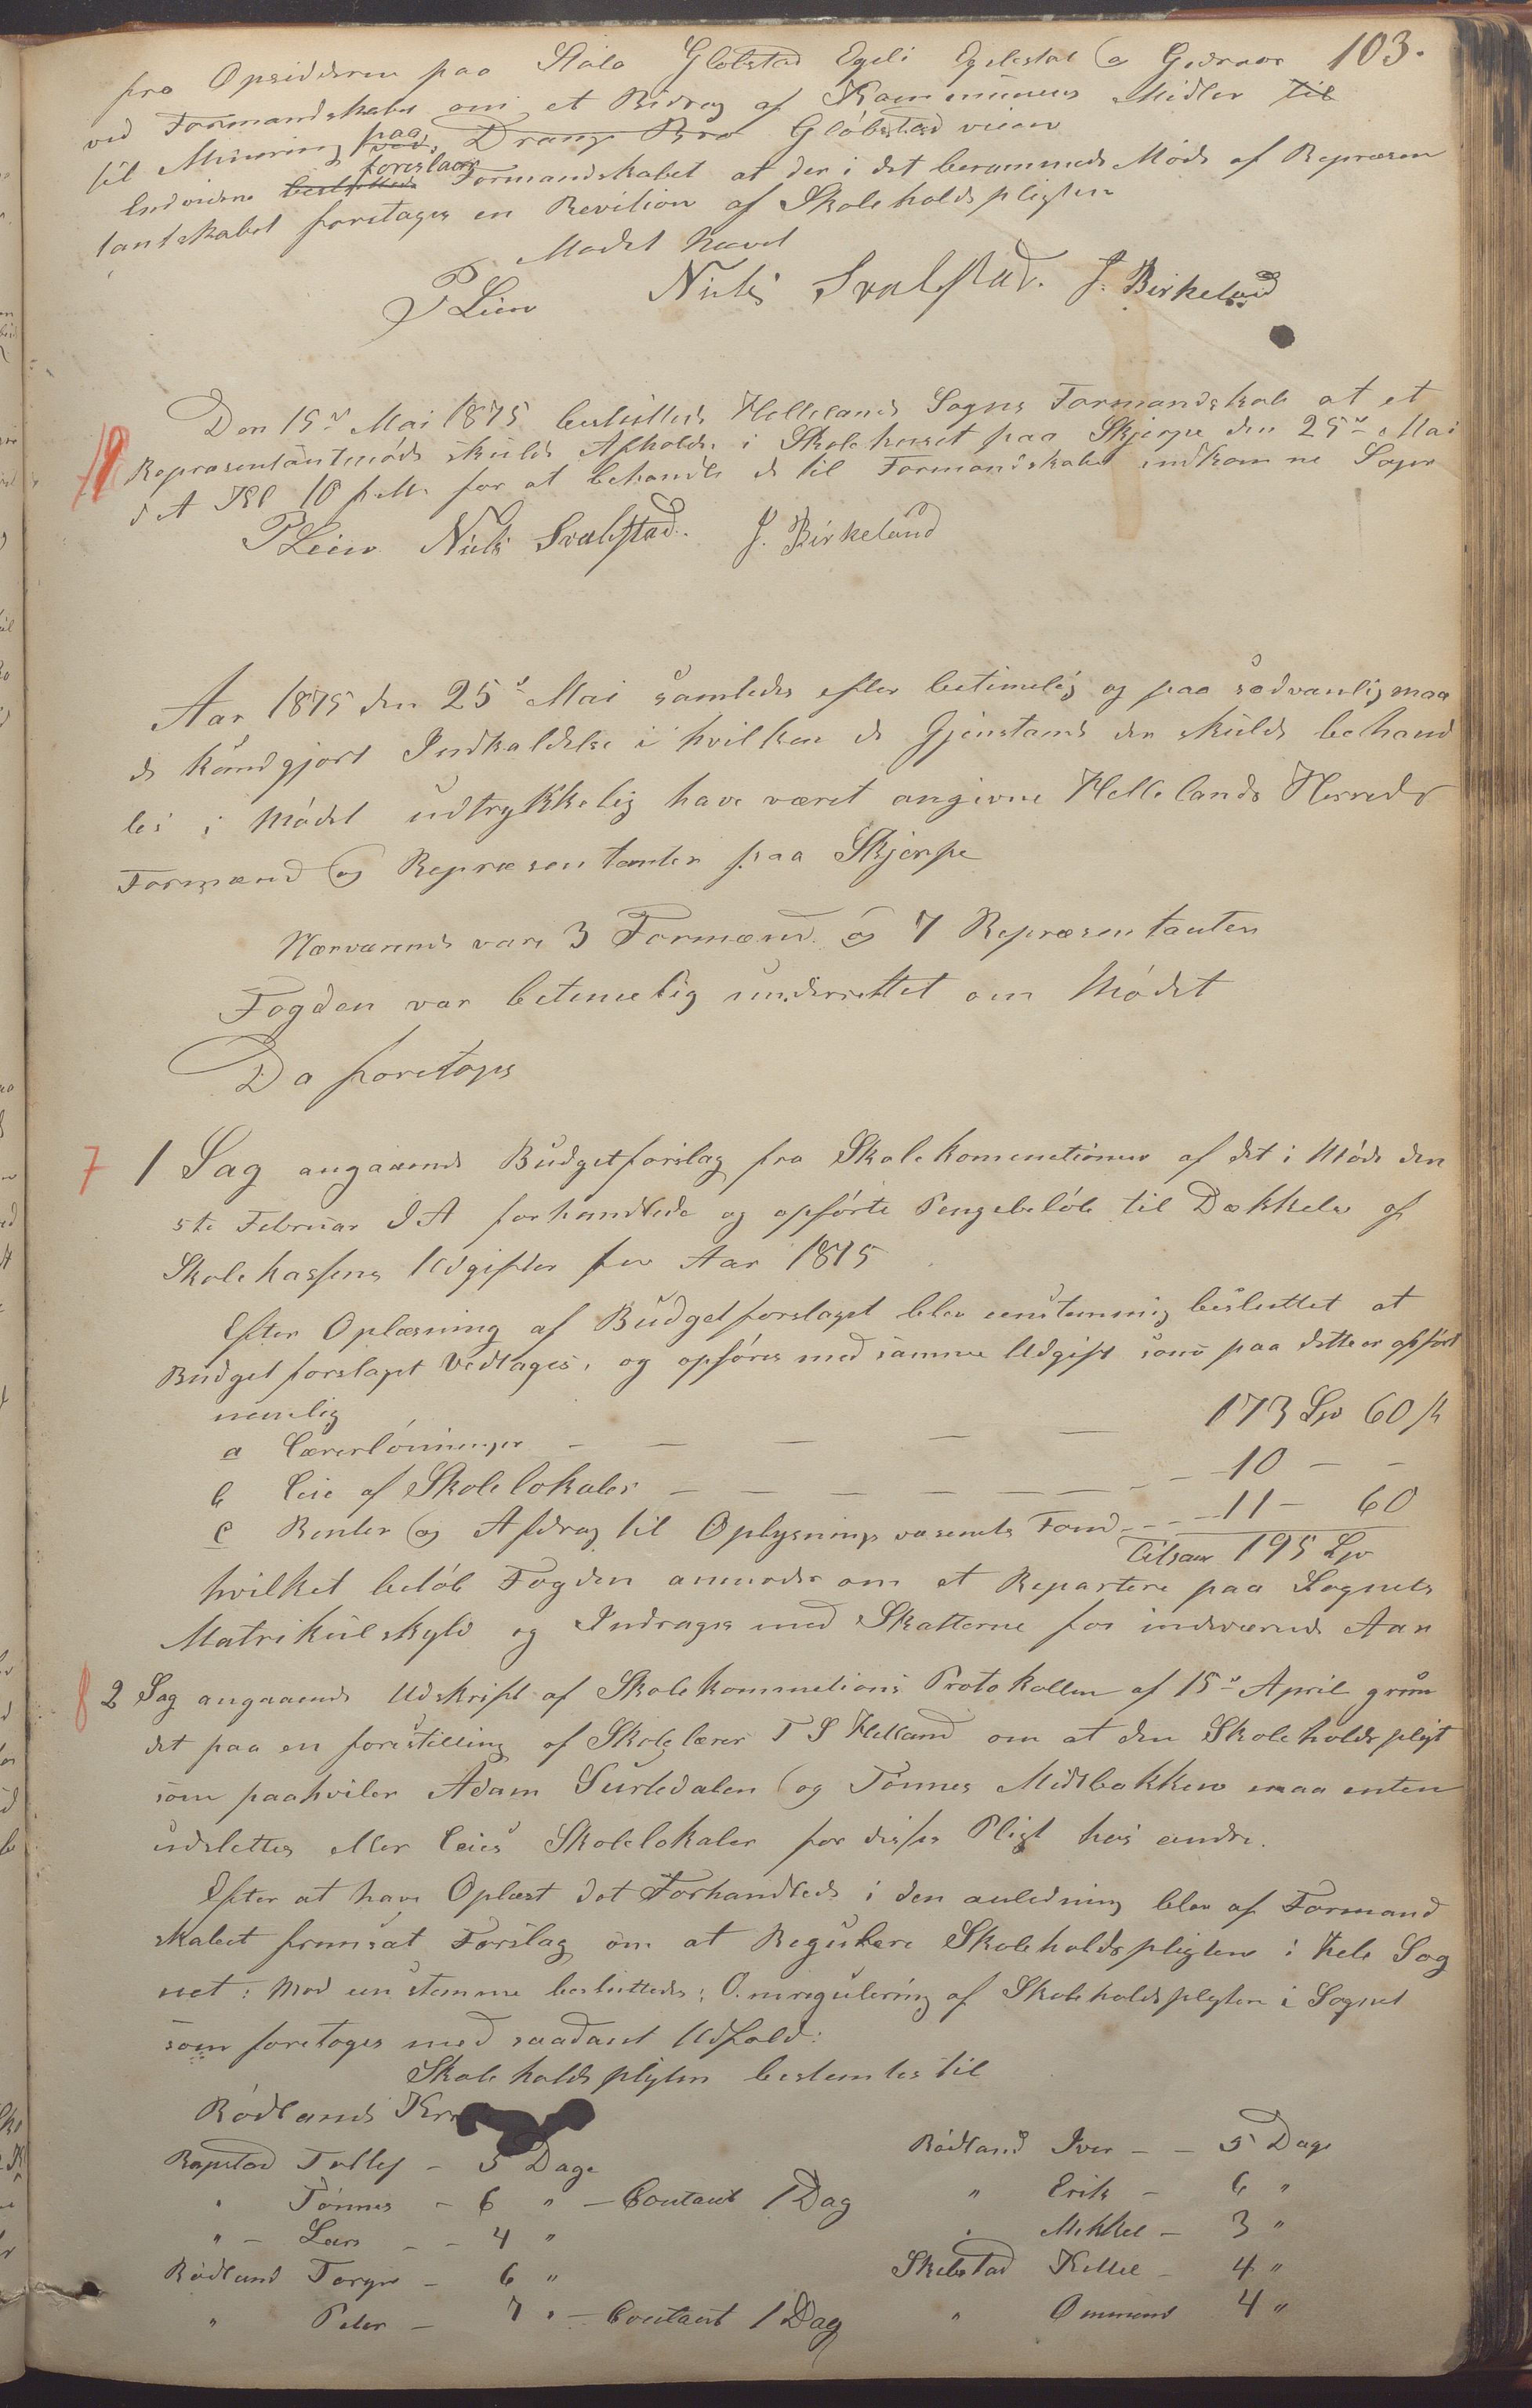 103.
fra Opsidderne paa Stala Gløbstad Egeli Egelestøl og Gydraas
ved Formandskabet om et Bidrag af Kommunens Midler til
til Minering paa ved Drangs Bro Gløbstadveien
Endvidere besluttede foreslaar Formandskabet at der i det berammede Møde af Repræsen
tantskabet foretages en Revition af Skoleholdspligten
Mødet hævet
P Lien Niels Svalestad. J. Birkeland
Den 15de Mai 1875 besluttede Hellelands Sogns Formandskab at et
Repræsentantmøde skulde Afholdes i Skolehuset paa Skjerpe den 25de Mai
d A Kl 10 f.M. for at behandle de til Formandskabet indkomne Sager
P Lien Niels Svalestad. J. Birkeland
Aar 1875 den 25de Mai samledes efter betimelig og paa sædvanlig maa
de kundgjort Indkaldelse i hvilken de Gjenstande der skulde behand
les i Mødet udtrykkelig have været angivne Hellelands Herreds
Formænd og Repræsentanter paa Skjerpe
Nærværende vare 3 Formænd og 7 Repræsentanter
Fogden var betimelig underrettet om Mødet
Da foretoges
7 1 Sag angaaende Budgetforslag fra Skolekommetionen af det i Møde den
5te Februar d A forhandlede og opførte Pengebeløb til Dækkelse af
Skolekassens Udgifter for Aar 1875
Efter Oplæsning af Budgetforslaget blev eenstemmig besluttet at
Budgetforslaget vedtages, og opføres med samme Udgift som paa dette er opført
nemlig
a Lærerlønninger — — — — — 173 Spd 60 s
b Leie af Skolelokaler — — — — — — 10 — -
c Renter og Afdrag til Oplysningsvæsenets Fond - - - 11 — 60
Tilsam 195 Spd
hvilket beløb Fogden anmodes om at Repartere paa Sognets
Matrikulskyld og Inddrages med Skatterne for indværende Aar
8 2 Sag angaaende Udskrift af Skolekommetions Protokollen af 15de April grun
det paa en forestilling af Skolelærer T S Helland om at den Skoleholdspligt
som paahviler Adam Surledalen og Tønnes Midtbakken maa enten
udslettes eller leies Skolelokaler for disses Pligt hos andre.
Efter at have Oplæst det Forhandlede i den anledning blev af Formand
skabet fremsat Forslag om at Regulere Skoleholdspligten i hele Sog
net: Mod en stemme besluttedes: Omregulering af Skoleholdspligten i Sognet
som foretoges med saadant Udfald:
Skoleholdspligten bestemtes til
Rødlands
Rapstad Tollef - 5 Dage
" Tønnes - 6 " — Contant 1 Dag
" - Lars - - 4 "
Rødland Torger - 6 "
" Peder - 7 " — Contant 1 Dag
Rødland Iver - - 5 Dage
" Erik - 6 "
" Mikkel - 3 "
Skebstad Kittel - 4 "
" Ommund 4 "